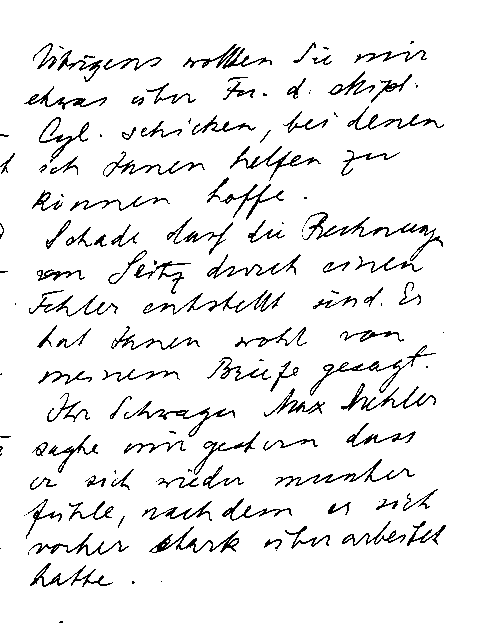 Übrigens wollten Sie mir
etwas über Fu. d. ellipt.
Cyl. schicken, bei denen
ich Ihnen helfen zu
können hoffe.
Schade dass die Rechnungen
von Seitz durch einen
Fehler entstellt sind. Er
hat Ihnen wohl von
meinem Briefe gesagt.
Ihr Schwager Max
sagte mir gestern dass
er sich wieder munter
fühle, nachdem er sich
vorher stark überarbeitet
hatte.